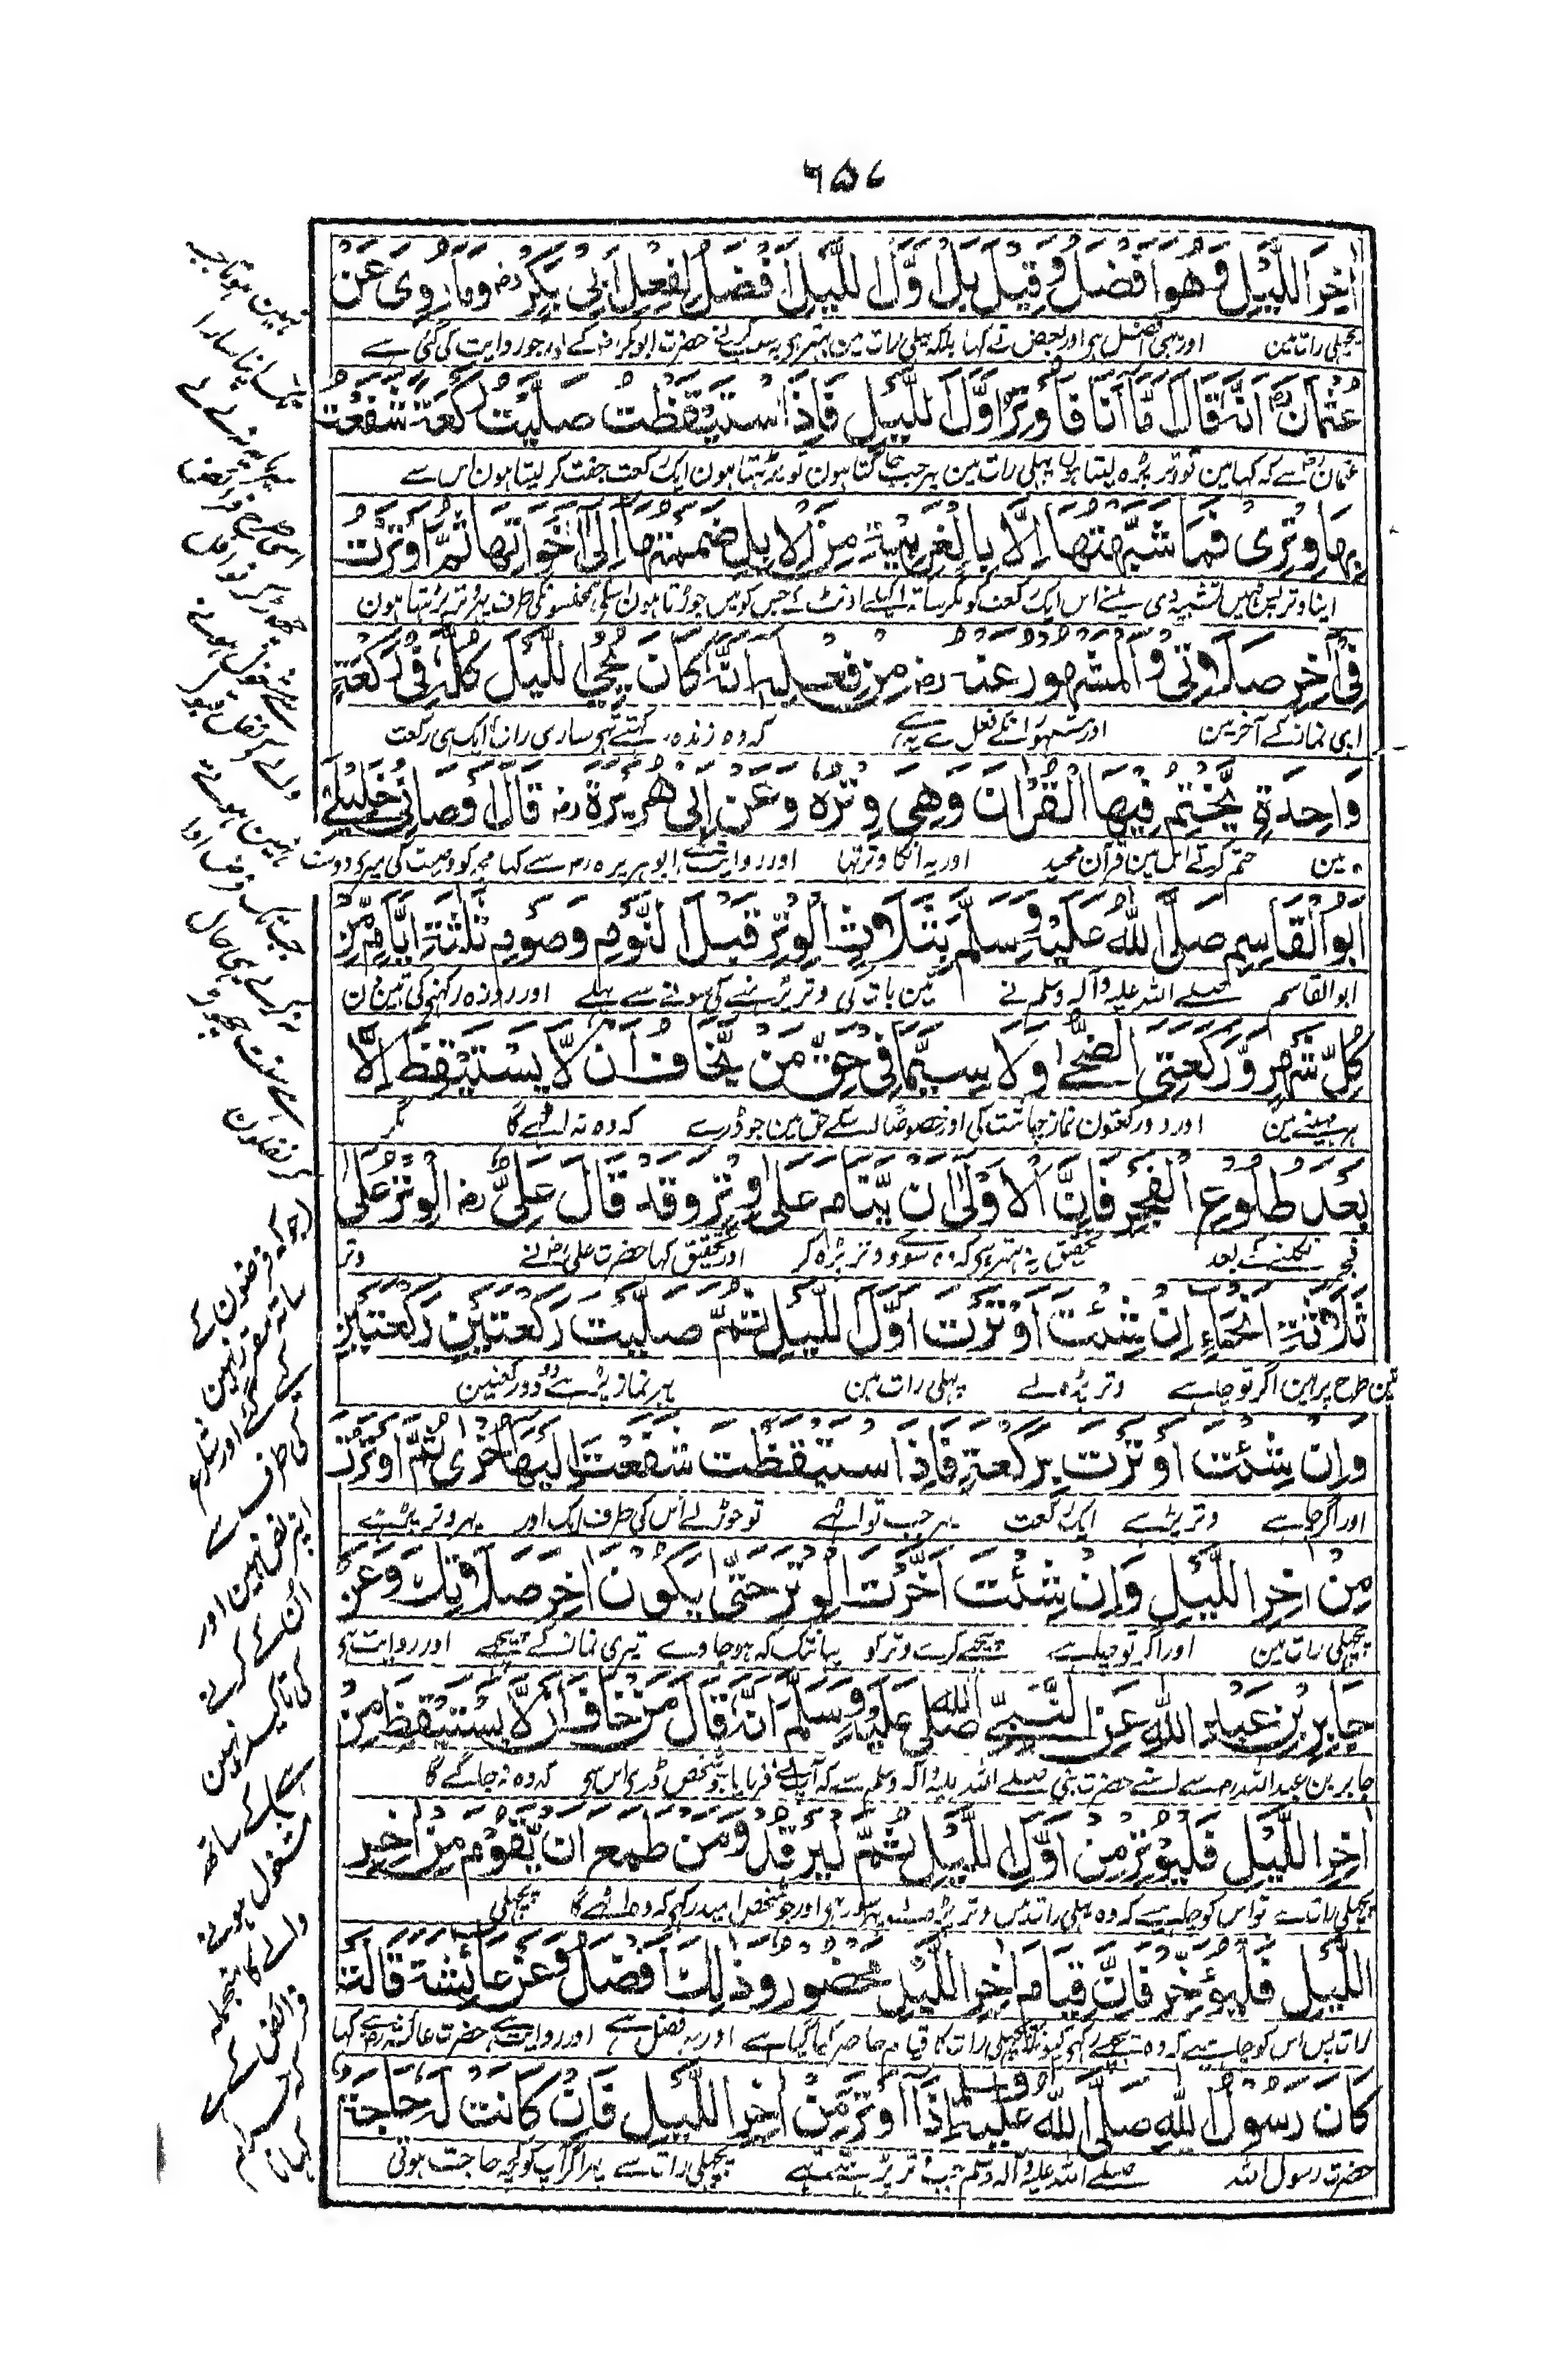 ۶۵۷
اٰخِرَ اللَّيْلِ وَهُوَ اَفْضَلُ وَقِيْلَ بَلْ اَوَّلَ اللَّيْلِ اَفْضَلُ لِفِعْلِ اَبِيْ بَكْرٍ رض وَمَا رُوِيَ عَنْ
پچھلی رات مین اور یہی افضل ہی اور بعض نے کہا بلکہ پہلی رات مین بہتر ہی بہ سبب کرنے حضرت ابوبکر رض کے اور جو روایت کی گئی ہے
عُثْمَانَ رض اَنَّهٗ قَالَ اَمَّا اَنَا فَاُوْتِرُ اَوَّلَ اللَّيْلِ فَاِذَا اسْتَيْقَظْتُ صَلَّيْتُ رَكْعَةً شَفَعْتُ
عثمان رض سے کہ کہا مین تو وتر پڑہ لیتا ہون پہلی رات مین پہر جب جاگتا ہون تو پڑہتا ہون ایک رکعت جفت کر لیتا ہون اس سے
بِهَا وِتْرِىْ فَمَا شَبَّهْتُهَا اِلَّا بِالْغَرِيْبَةِ مِنَ الْاِبِلِ ضَمَمْتُهَا اِلٰى اَخَوَاتِهَا ثُمَّ اَوْتَرْتُ
اپنا وتر پس نہین تشبیہ دی مینے اس ایک رکعت کو مگر ساتہ اکیلے اونٹ کے جس کو مین جوڑتا ہون اسکی ہمجنسونکی طرف پہر وتر پڑہتا ہون
فِيْ اٰخِرِ صَلَاتِيْ وَالْمَشْهُوْرُ عَنْهُ رض مِنْ فِعْلِهٖ اَنَّهٗ كَانَ يُحْيِي اللَّيْلَ كُلَّهٗ فِيْ رَكْعَةٍ
اپنی نماز کے آخر مین اور مشہور انکے فعل سے یہ ہے کہ وہ زندہ رکہتے تہے ساری رات ایک ہی رکعت
وَاحِدَةٍ يَخْتِمُ فِيْهَا الْقُرْاٰنَ وَهِيَ وِتْرُهٗ وَعَنْ اَبِيْ هُرَيْرَةَ رض قَالَ اَوْصَانِيْ خَلِيْلِيْ
مین ختم کرتے اس مین قرآن مجید اور یہ انکا وتر تہا اور روایت ہے ابو ہریرہ رض سے کہا مجہ کو وصیت کی میرے دوست
اَبُو الْقَاسِمِ صَلَّى اللّٰهُ عَلَيْهِ وَسَلَّمَ بِثَلَاثٍ الْوِتْرِ قَبْلَ النَّوْمِ وَصَوْمِ ثَلٰثَةِ اَيَّامٍ مِّنْ
ابو القاسم صلے اللہ علیہ وآلہ وسلم نے تین بات کی وتر پڑہنے کی سونے سے پہلے اور روزہ رکہنے کی تین دن
كُلِّ شَهْرٍ وَّرَكْعَتَيِ الضُّحٰى وَلَا سِيَّمَا فِيْ حَقِّ مَنْ يَّخَافُ اَنْ لَّا يَسْتَيْقِظَ اِلَّا
ہر مہینے مین اور دو رکعتون نماز چاشت کی اور خصوصًا اسکے حق مین جو ڈرے کہ وہ نہ اٹہے گا مگر
بَعْدَ طُلُوْعِ الْفَجْرِ فَاِنَّ الْاَوْلٰى اَنْ يَّنَامَ عَلٰى وِتْرٍ وَقَدْ قَالَ عَلِيٌّ رض الْوِتْرُ عَلٰى
فجر نکلنے کے بعد تحقیق یہ بہتر ہی کہ وہ سووے وتر پڑہ کر اور تحقیق کہا حضرت علی رض نے وتر
ثَلَاثَةِ اَنْحَاءٍ اِنْ شِئْتَ اَوْتَرْتَ اَوَّلَ اللَّيْلِ ثُمَّ صَلَّيْتَ رَكْعَتَيْنِ رَكْعَتَيْنِ
تین طرح پر ہین اگر تو چاہے وتر پڑہ لے پہلی رات مین پہر نماز پڑہے دو دو رکعتین
وَاِنْ شِئْتَ اَوْتَرْتَ بِرَكْعَةٍ فَاِذَا اسْتَيْقَظْتَ شَفَعْتَ اِلَيْهَا اُخْرٰى ثُمَّ اَوْتَرْتَ
اور اگر چاہے وتر پڑہے ایک رکعت پہر جب تو اٹہے تو جوڑ لے اس کی طرف ایک اور پہر وتر پڑہے
مِنْ اٰخِرِ اللَّيْلِ وَاِنْ شِئْتَ اَخَّرْتَ الْوِتْرَ حَتّٰى يَكُوْنَ اٰخِرَ صَلَاتِكَ وَعَنْ
پچھلی رات مین اور اگر تو چاہے پیچھے کرے وتر کو یہانتک کہ ہو جاوے تیری نماز کے پیچھے اور روایت ہی
جَابِرِ بْنِ عَبْدِ اللّٰهِ عَنِ النَّبِيِّ صَلَّى اللّٰهُ عَلَيْهِ وَسَلَّمَ اَنَّهٗ قَالَ مَنْ خَافَ اَنْ لَّا يَسْتَيْقِظَ مِنْ
جابر بن عبد اللہ رض سے اسنے حضرت نبی صلے اللہ علیہ وآلہ وسلم سے کہ آپ نے فرمایا جو شخص ڈرے اس سے کہ وہ نہ جاگے گا
اٰخِرِ اللَّيْلِ فَلْيُوْتِرْ مِنْ اَوَّلِ اللَّيْلِ ثُمَّ لْيَرْقُدْ وَمَنْ طَمَعَ اَنْ يَّقُوْمَ مِنْ اٰخِرِ
پچھلی رات سے تو اس کو چاہیے کہ وہ پہلی رات مین وتر پڑہے پہر سو رہے اور جو شخص امید رکہے کہ وہ اٹہے گا پچھلی
اللَّيْلِ فَلْيُؤَخِّرْ فَاِنَّ قِيَامَ اٰخِرِ اللَّيْلِ مَحْضُوْرٌ وَذٰلِكَ اَفْضَلُ وَعَنْ عَائِشَةَ قَالَتْ
رات پس اس کو چاہیے کہ وہ پیچھے رکہے کیونکہ پچھلی رات کا قیام حاضر کیا گیا ہے اور یہ افضل ہے اور روایت ہے حضرت عائشہ رض سے کہا
كَانَ رَسُوْلُ اللّٰهِ صَلَّى اللّٰهُ عَلَيْهِ وَسَلَّمَ اِذَا اَوْتَرَ مِنْ اٰخِرِ اللَّيْلِ فَاِنْ كَانَتْ لَهٗ حَاجَةٌ
حضرت رسول اللہ صلے اللہ علیہ وآلہ وسلم جب وتر پڑہتے تہے پچھلی رات سے پہر اگر آپ کو کچہ حاجت ہوتی
نہین ہوتا
اسی طرح فرائض
چہوڑ کر نوافل
مشغول ہونے
نہین ہوتے
یہی حال
سنت چہوڑ
کر نفلون
جو کہ فرضون کے
ساتہ مقرر نہین
کیے گئے اور شارع
کی طرف سے
نہین اور
ان کے کرنے
کی تاکید نہین
ساتہ
مشغول ہونے
والے کا
فرائض کے